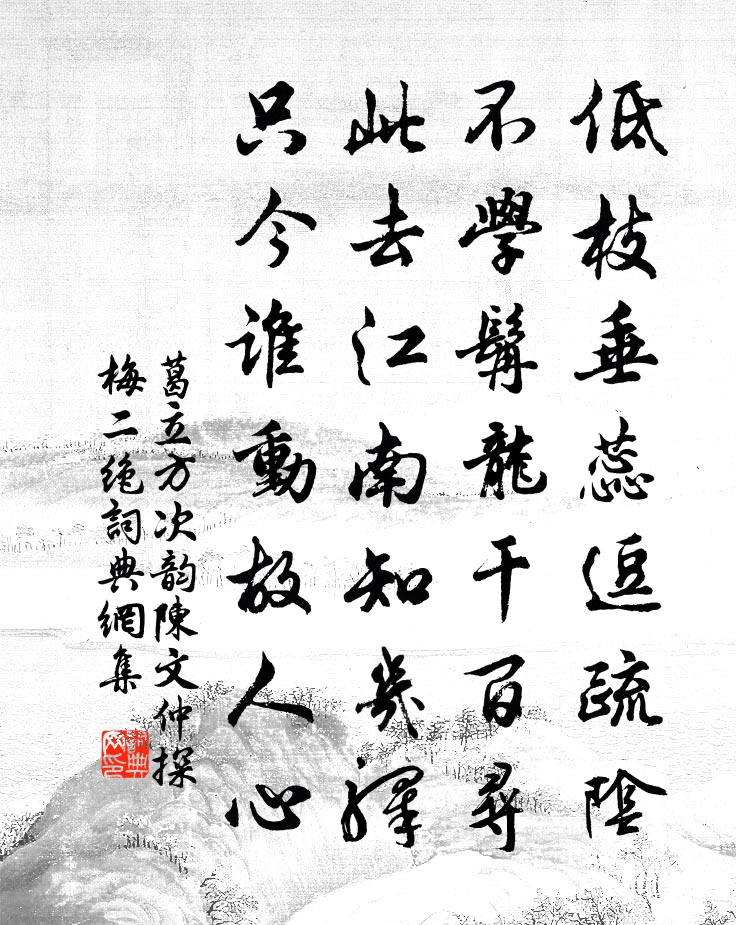 低枝垂蕊逗疏陰
不學髯龍干百尋
此去江南知幾驛
只今誰動故人心
葛立方次韵陳文仲探
梅二絕詞典網集
詞典网印